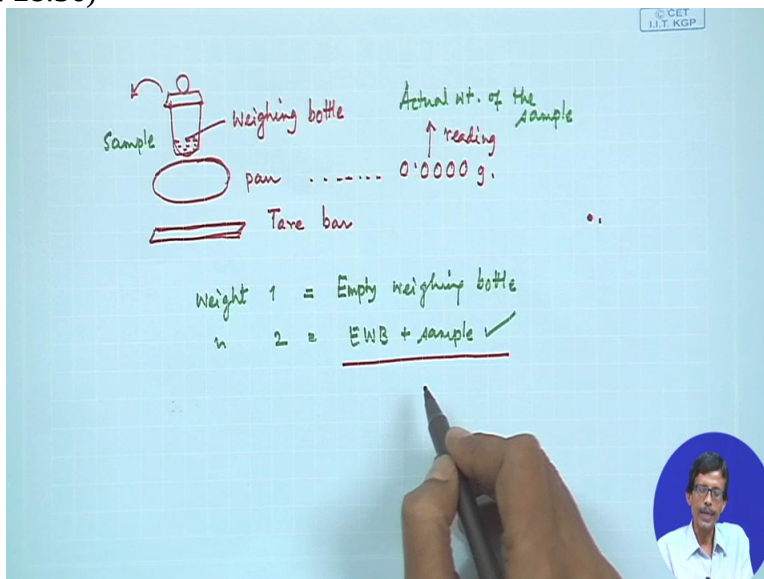 28:30)
© CET
I.I.T. KGP
Sample
Weighing bottle
Actual wt. of the sample
↑ reading
pan ....... 0.0000 g.
Tare bar
Weight 1 = Empty weighing bottle
" 2 = EWB + sample ✓